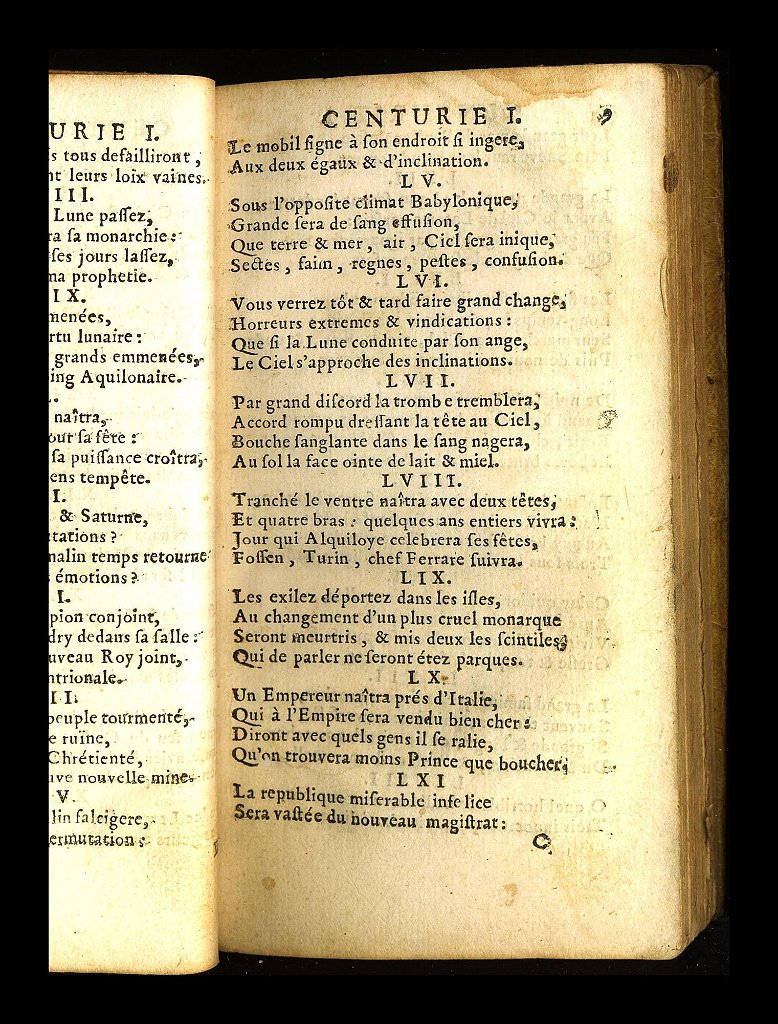 URIE I.
s tous defailliront,
nt leurs loix vaines.
III.
Lune passez,
ra sa monarchie:
ses jours lassez,
na prophetie.
IX.
menées,
rtu lunaire:
grands emmenées,
ing Aquilonaire.
naîtra,
our sa fête:
sa puissance croîtra,
ens tempête.
I.
& Saturne,
tations?
malin temps retourne
émotions?
I.
pion conjoint,
dry dedans sa salle:
uveau Roy joint,
ntrionale.
II.
peuple tourmenté,
e ruïne,
Chrétienté,
uve nouvelle mine.
V.
lin falcigere,
ermutation:
CENTURIE I. 9
Le mobil signe à son endroit si ingere,
Aux deux égaux & d'inclination.
LV.
Sous l'opposite climat Babylonique,
Grande sera de sang effusion,
Que terre & mer, air, Ciel sera inique,
Sectes, faim, regnes, pestes, confusion.
LVI.
Vous verrez tôt & tard faire grand change,
Horreurs extremes & vindications:
Que si la Lune conduite par son ange,
Le Ciel s'approche des inclinations.
LVII.
Par grand discord la trombe tremblera,
Accord rompu dressant la tête au Ciel,
Bouche sanglante dans le sang nagera,
Au sol la face ointe de lait & miel.
LVIII.
Tranché le ventre naîtra avec deux têtes,
Et quatre bras: quelques ans entiers vivra:
Jour qui Alquiloye celebrera ses fêtes,
Fossen, Turin, chef Ferrare suivra.
LIX.
Les exilez déportez dans les isles,
Au changement d'un plus cruel monarque
Seront meurtris, & mis deux les scintiles,
Qui de parler ne seront étez parques.
LX.
Un Empereur naîtra prés d'Italie,
Qui à l'Empire sera vendu bien cher:
Diront avec quels gens il se ralie,
Qu'on trouvera moins Prince que boucher,
LXI
La republique miserable infelice
Sera vastée du nouveau magistrat:
C